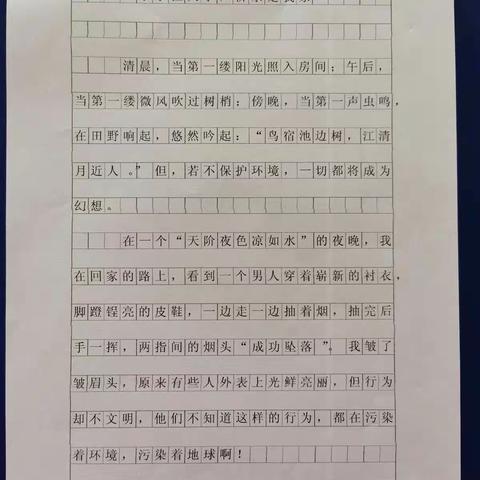 清晨，当第一缕阳光照入房间；午后，
当第一缕微风吹过树梢；傍晚，当第一声虫鸣，
在田野响起，悠然吟起：“鸟宿池边树，江清
月近人。”但，若不保护环境，一切都将成为
幻想。
在一个“天阶夜色凉如水”的夜晚，我
在回家的路上，看到一个男人穿着崭新的衬衣，
脚蹬锃亮的皮鞋，一边走一边抽着烟，抽完后
手一挥，两指间的烟头“成功坠落”。我皱了
皱眉头，原来有些人外表上光鲜亮丽，但行为
却不文明，他们不知道这样的行为，都在污染
着环境，污染着地球啊！